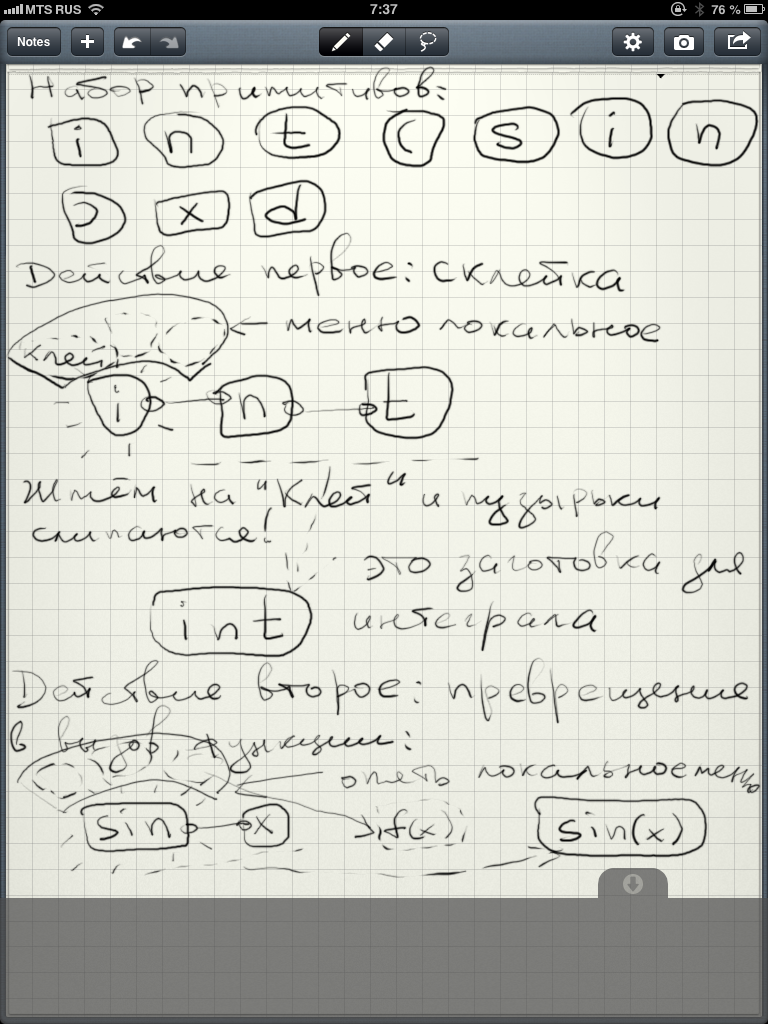 MTS RUS 7:37 76 %
Notes
Набор примитивов:
i n t ( s i n
) x d
Действие первое: склейка
клей ← меню локальное
i n t
Жмём на "Клей" и пузырьки
слипаются!
это заготовка для
int интеграла
Действие второе: превращение
в вызов функции:
опять локальное меню
sin x f(x) sin(x)